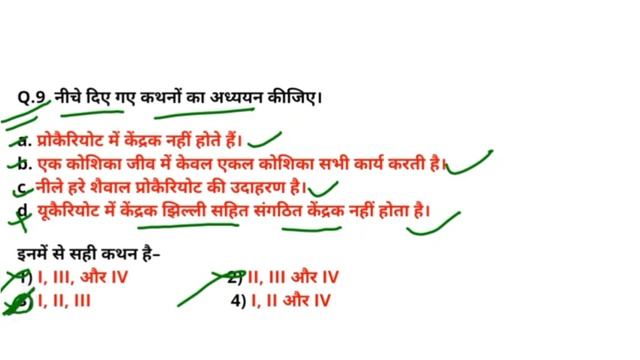 Q.9 नीचे दिए गए कथनों का अध्ययन कीजिए।
a. प्रोकैरियोट में केंद्रक नहीं होते हैं।
b. एक कोशिका जीव में केवल एकल कोशिका सभी कार्य करती है।
c. नीले हरे शैवाल प्रोकैरियोट की उदाहरण है।
d. यूकैरियोट में केंद्रक झिल्ली सहित संगठित केंद्रक नहीं होता है।
इनमें से सही कथन है–
1) I, III, और IV 2) II, III और IV
3) I, II, III 4) I, II और IV